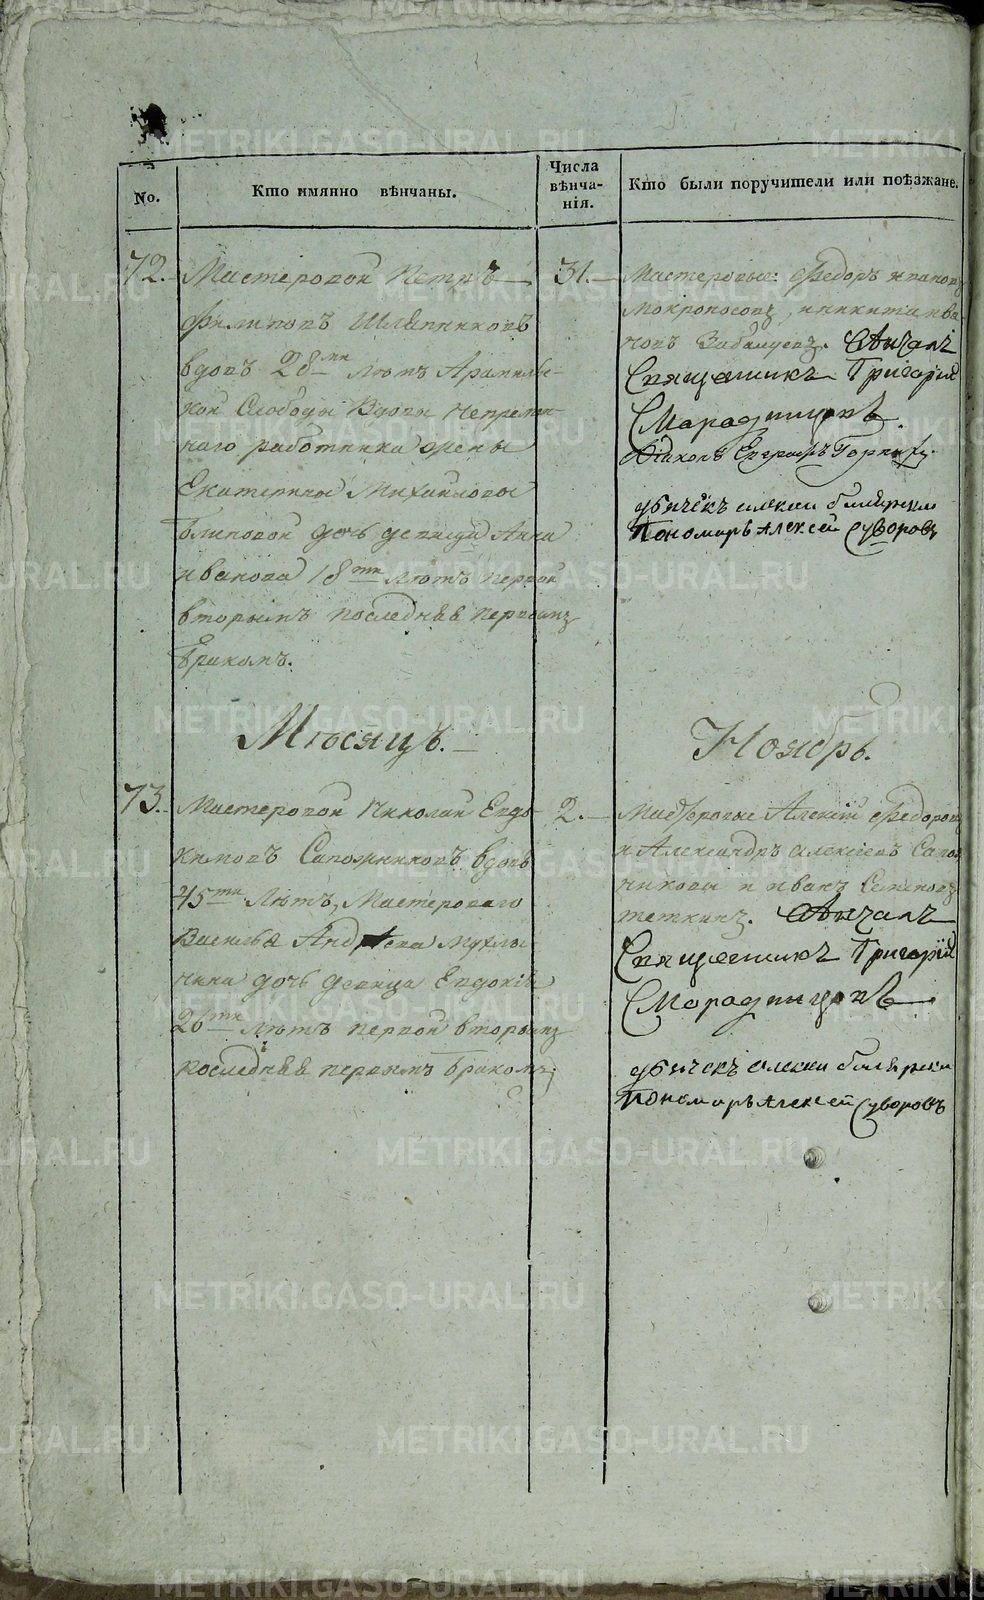 No.
Кто имянно вѣнчаны.
Числа
вѣнча-
нія.
Кто были поручители или поѣзжане.
72.
Мастеровой Петръ
Филиповъ Шляпниковъ
вдовъ 28ми лѣтъ Арамиль-
ской Слободы Вдовы Непремѣн-
наго работника жены
Екатерины Михайловой
Блиновой дочь девица Анна
Иванова 18ти лѣтъ первой
вторымъ последняя первымъ
бракомъ.
31.
Мастеровые: Федоръ Ивановъ
Мокроносовъ, и Никита Ива
новъ
Вѣнчалъ
Священникъ Григорий
Смородинцовъ.
Діаконъ Евграфъ
Алексей
Пономарь Алексей Суворовъ
Мѣсяцъ.
Ноябрь.
73.
Мастеровой Николай Евдо
кимовъ Сапожниковъ вдовъ
45ти лѣтъ, Мастероваго
Василья Андреева
дочь девица Евдокія
26ти лѣтъ первой вторымъ
последняя первымъ бракомъ
2.
Мастеровые Алексій Федоровъ
и Александръ Алексеевъ Сапож
никовы и Иванъ Семеновъ
Теткинъ. Вѣнчалъ
Священникъ Григорій
Смородинцовъ
Алексей
Пономарь Алексей Суворовъ
METRIKI.GASO-URAL.RU